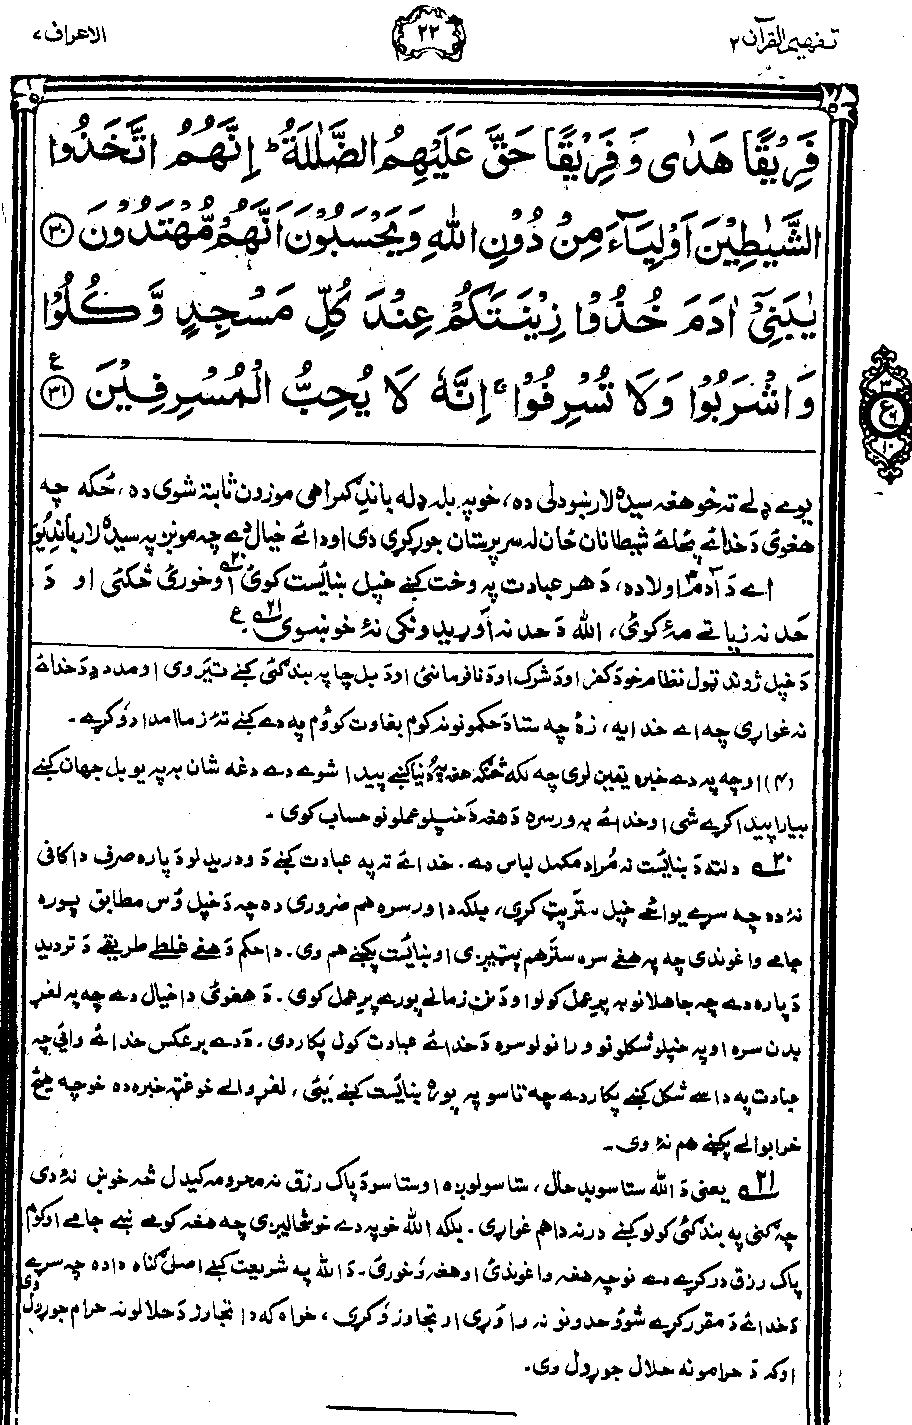 تفهیم القرآن ۲
۲۲
الاعراف ۷
فَرِيْقًا هَدٰى وَ فَرِيْقًا حَقَّ عَلَيْهِمُ الضَّلٰلَةُ ؕ اِنَّهُمُ اتَّخَذُوا
الشَّيٰطِيْنَ اَوْلِيَآءَ مِنْ دُوْنِ اللّٰهِ وَيَحْسَبُوْنَ اَنَّهُمْ مُّهْتَدُوْنَ ﴿۳۰﴾
يٰبَنِيْٓ اٰدَمَ خُذُوْا زِيْنَتَكُمْ عِنْدَ كُلِّ مَسْجِدٍ وَّ كُلُوْا
وَاشْرَبُوْا وَلَا تُسْرِفُوْا ۚ اِنَّهٗ لَا يُحِبُّ الْمُسْرِفِيْنَ ﴿۳۱﴾ ع
۳ ع ۹ ۱۰
یوے ډلے ته خو هغه سیده لار ښودلی ده، خو په بله ډله باندِ گمراهی موزون ثابته شوی ده، ځکه چه
هغوئ دَ خدائے په ځائے شیطانان ځان له سرپرستان جوړ کړی دی او دائے خیال دے چه مونږ په سیده لار باندِ یو
اے دَ آدمؑ اولاده، دَ هر عبادت په وخت کښے خپل ښائست کوئ۲۰ او خورئ څکئ او دَ
حَد نه زیاتے مهٔ کوئ، الله دَ حد نه اَوړیدونکی نهٔ خوښوی۲۱ ع
دَ خپل ژوند ټول نظام خو دَ کفر او دَ شرک او دَ نافرمانئ او دَ بل چا په بندگئ کښے تیروی او مدد دِ دَ خدائے
نه غواړی چه اے خدایه، زهٔ چه ستا دَ حکمونو نه کوم بغاوت کوؤم په دے کښے تهٔ زما امداد وٗکړے۔
(۴) او چه په دے خبره یقین لری چه لکه څنگه هغه په دُنیا کښے پیدا شوے دے دغه شان به په یو بل جهان کښے
بیا راپیدا کړے شی او خدائے به ورسره دَ هغه دَ خپلو عملونو حساب کوی۔
۲۰ دلته دَ ښائست نه مُراد مکمل لباس دے۔ خدائے ته په عبادت کښے دَ ودریدلو دَ پاره صرف دا کافی
نهٔ ده چه سړے یوائے خپل ستر پټ کړی، بلکه دا ورسره هم ضروری ده چه دَ خپل وُس مطابق پوره
جامے واغوندی چه په هغے سره ستر هم پټیږی او ښائست پکښے هم وی۔ دا حکم دَ هغے غلطے طریقے دَ تردید
دَ پاره دے چه جاهلانو به پرِ عمل کولو او دَ نن زمانے پورے پرِ عمل کوی۔ دَ هغوئ دا خیال دے چه په لغړ
بدن سره او په خپلو شکلونو ورانولو سره دَ خدائے عبادت کول پکار دی۔ دَ دے برعکس خدائے وائی چه
عبادت په داسے شکل کښے پکار دے چه تاسو په پوره ښائست کښے یَئ، لغړوالے خو غټه خبره ده خو چه هیڅ
خرابوالے پکښے هم نهٔ وی۔
۲۱ یعنی دَ الله ستاسو بد حال، ستاسو لوږه او ستاسو دَ پاک رزق نه محرومه کیدل څه خوښ نهٔ دی
چه ګنی په بندگئ کولو کښے درنه دا هم غواړی۔ بلکه الله خو په دے خوشحالیږی چه هغه کومے ښے جامے او کوم
پاک رزق درکړے دے نو چه هغه واغوندئ او هغه وٗخورئ۔ دَ الله په شریعت کښے اصلی گناه دا ده چه سړے دی
دَ خدائے دَ مقرر کړے شوؤ حدونو نه واوړی او تجاوز وٗکړی، خواه که دا تجاوز دَ حلالو نه حرام جوړول
او که دَ حرامو نه حلال جوړول وی۔